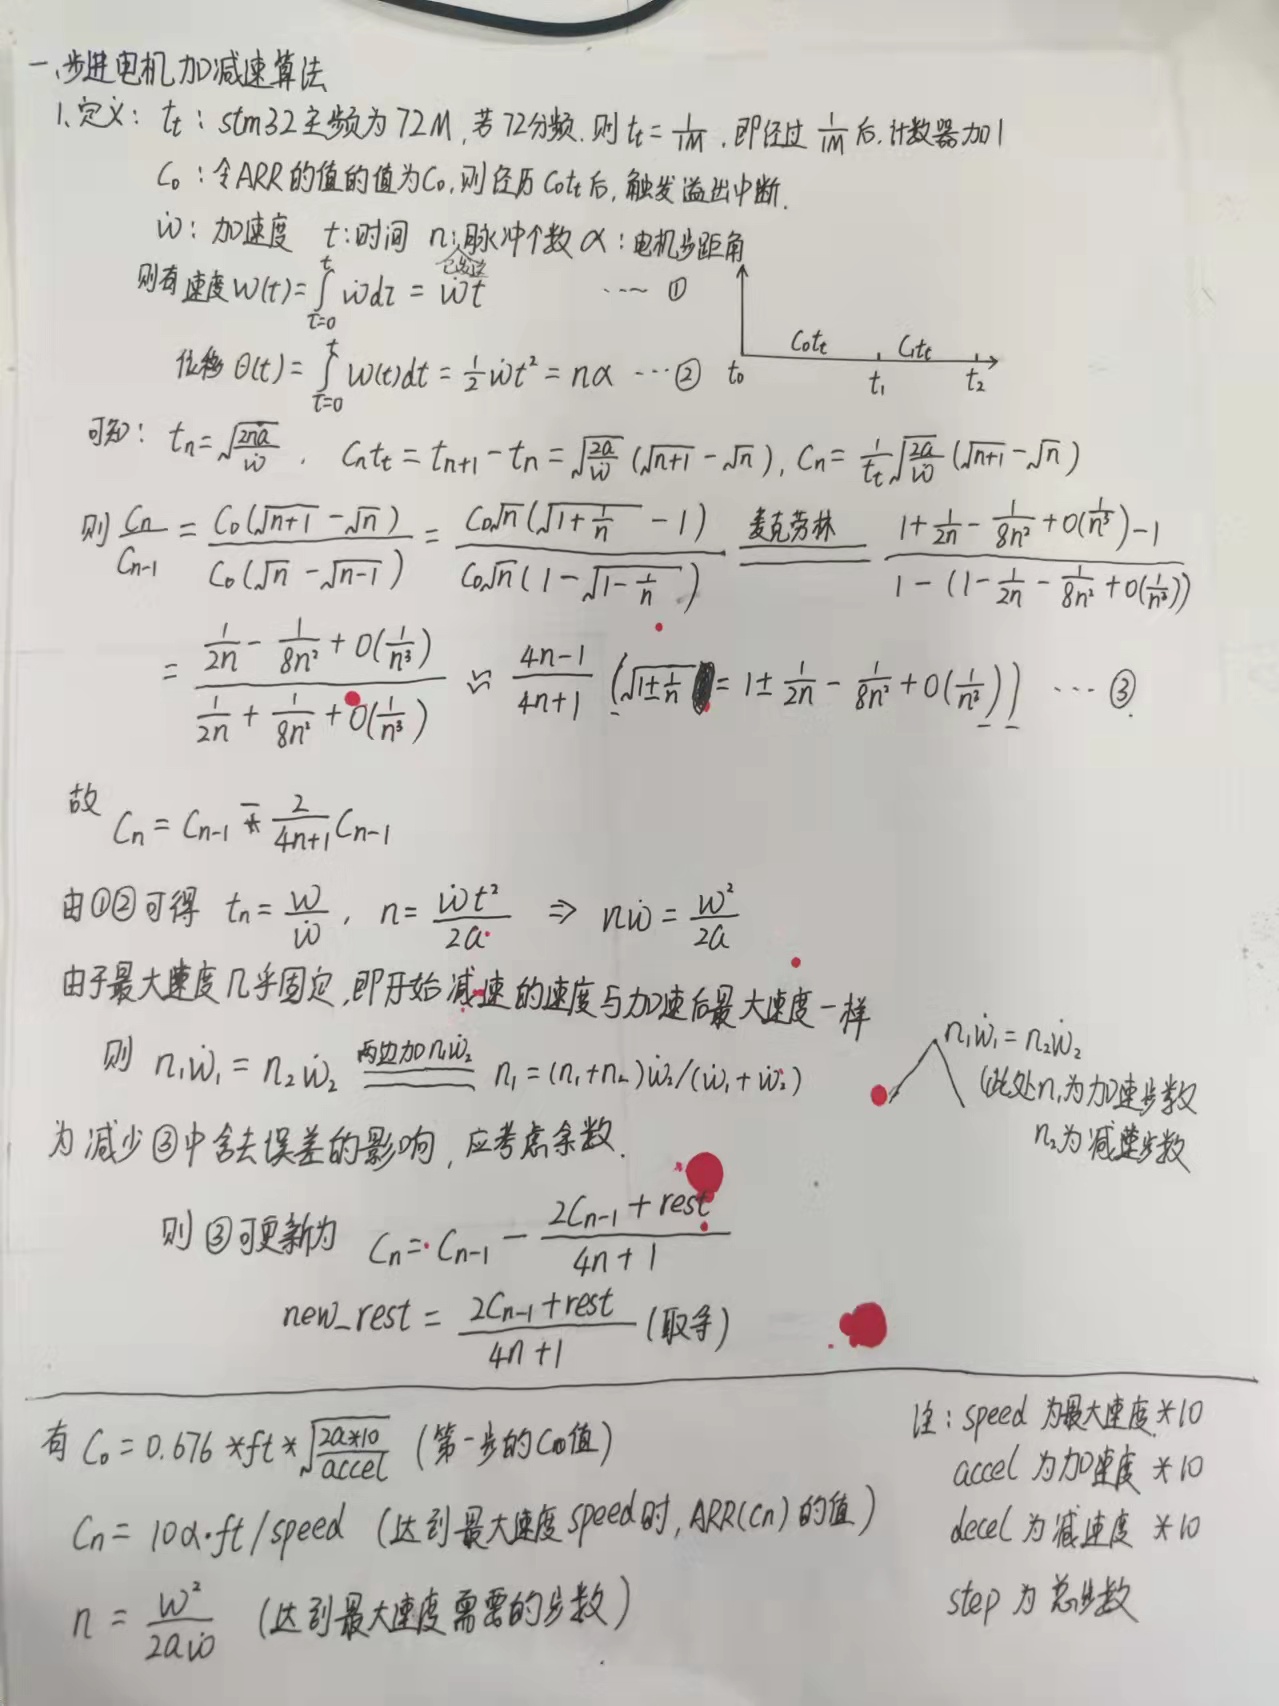 一、步进电机加减速算法
1、定义: tt: stm32主频为72M,若72分频.则 tt = 1/1M ,即经过 1/1M 后,计数器加1
C0: 令ARR的值的值为C0,则经历C0tt后,触发溢出中断.
ẇ: 加速度 t:时间 n:脉冲个数 α: 电机步距角
已发送
则有速度W(t)=∫_{τ=0}^{t} ẇdτ = ẇt ---- ①
位移θ(t)=∫_{τ=0}^{t} W(t)dt = 1/2 ẇt² = nα ---②
C0tt C1tt
t0 t1 t2
可知: tn=√(2na/ẇ) , Cntt = tn+1 - tn = √(2a/ẇ) (√(n+1) - √n), Cn = 1/tt √(2a/ẇ) (√(n+1) - √n)
则 Cn/Cn-1 = C0(√(n+1) - √n) / C0(√n - √(n-1)) = C0√n(√(1+1/n) - 1) / C0√n(1-√(1-1/n)) 麦克劳林 (1+1/2n - 1/8n² + O(1/n³) - 1) / (1-(1-1/2n - 1/8n² + O(1/n³)))
= (1/2n - 1/8n² + O(1/n³)) / (1/2n + 1/8n² + O(1/n³)) ≈ (4n-1)/(4n+1) (√(1±1/n) = 1± 1/2n - 1/8n² + O(1/n³)) --- ③
故 Cn = Cn-1 - 2/(4n+1) Cn-1
由①②可得 tn = w/ẇ , n = ẇt²/2a ⇒ nẇ = w²/2a
由于最大速度几乎固定,即开始减速的速度与加速后最大速度一样
则 n1ẇ1 = n2ẇ2 两边加n1ẇ2 n1 = (n1+n2)ẇ2/(ẇ1+ẇ2)
n1ẇ1 = n2ẇ2
(此处n1为加速步数
n2为减速步数
为减少③中舍去误差的影响,应考虑余数.
则③可更新为 Cn = Cn-1 - (2Cn-1 + rest)/(4n+1)
new_rest = (2Cn-1+rest)/(4n+1) (取余)
有 C0 = 0.676 *ft*√(2a*10/accel) (第一步的C0值)
Cn = 10α·ft/speed (达到最大速度speed时, ARR(Cn)的值)
n = w²/2aẇ (达到最大速度需要的步数)
注: speed 为最大速度*10
accel 为加速度 *10
decel 为减速度 *10
step 为总步数